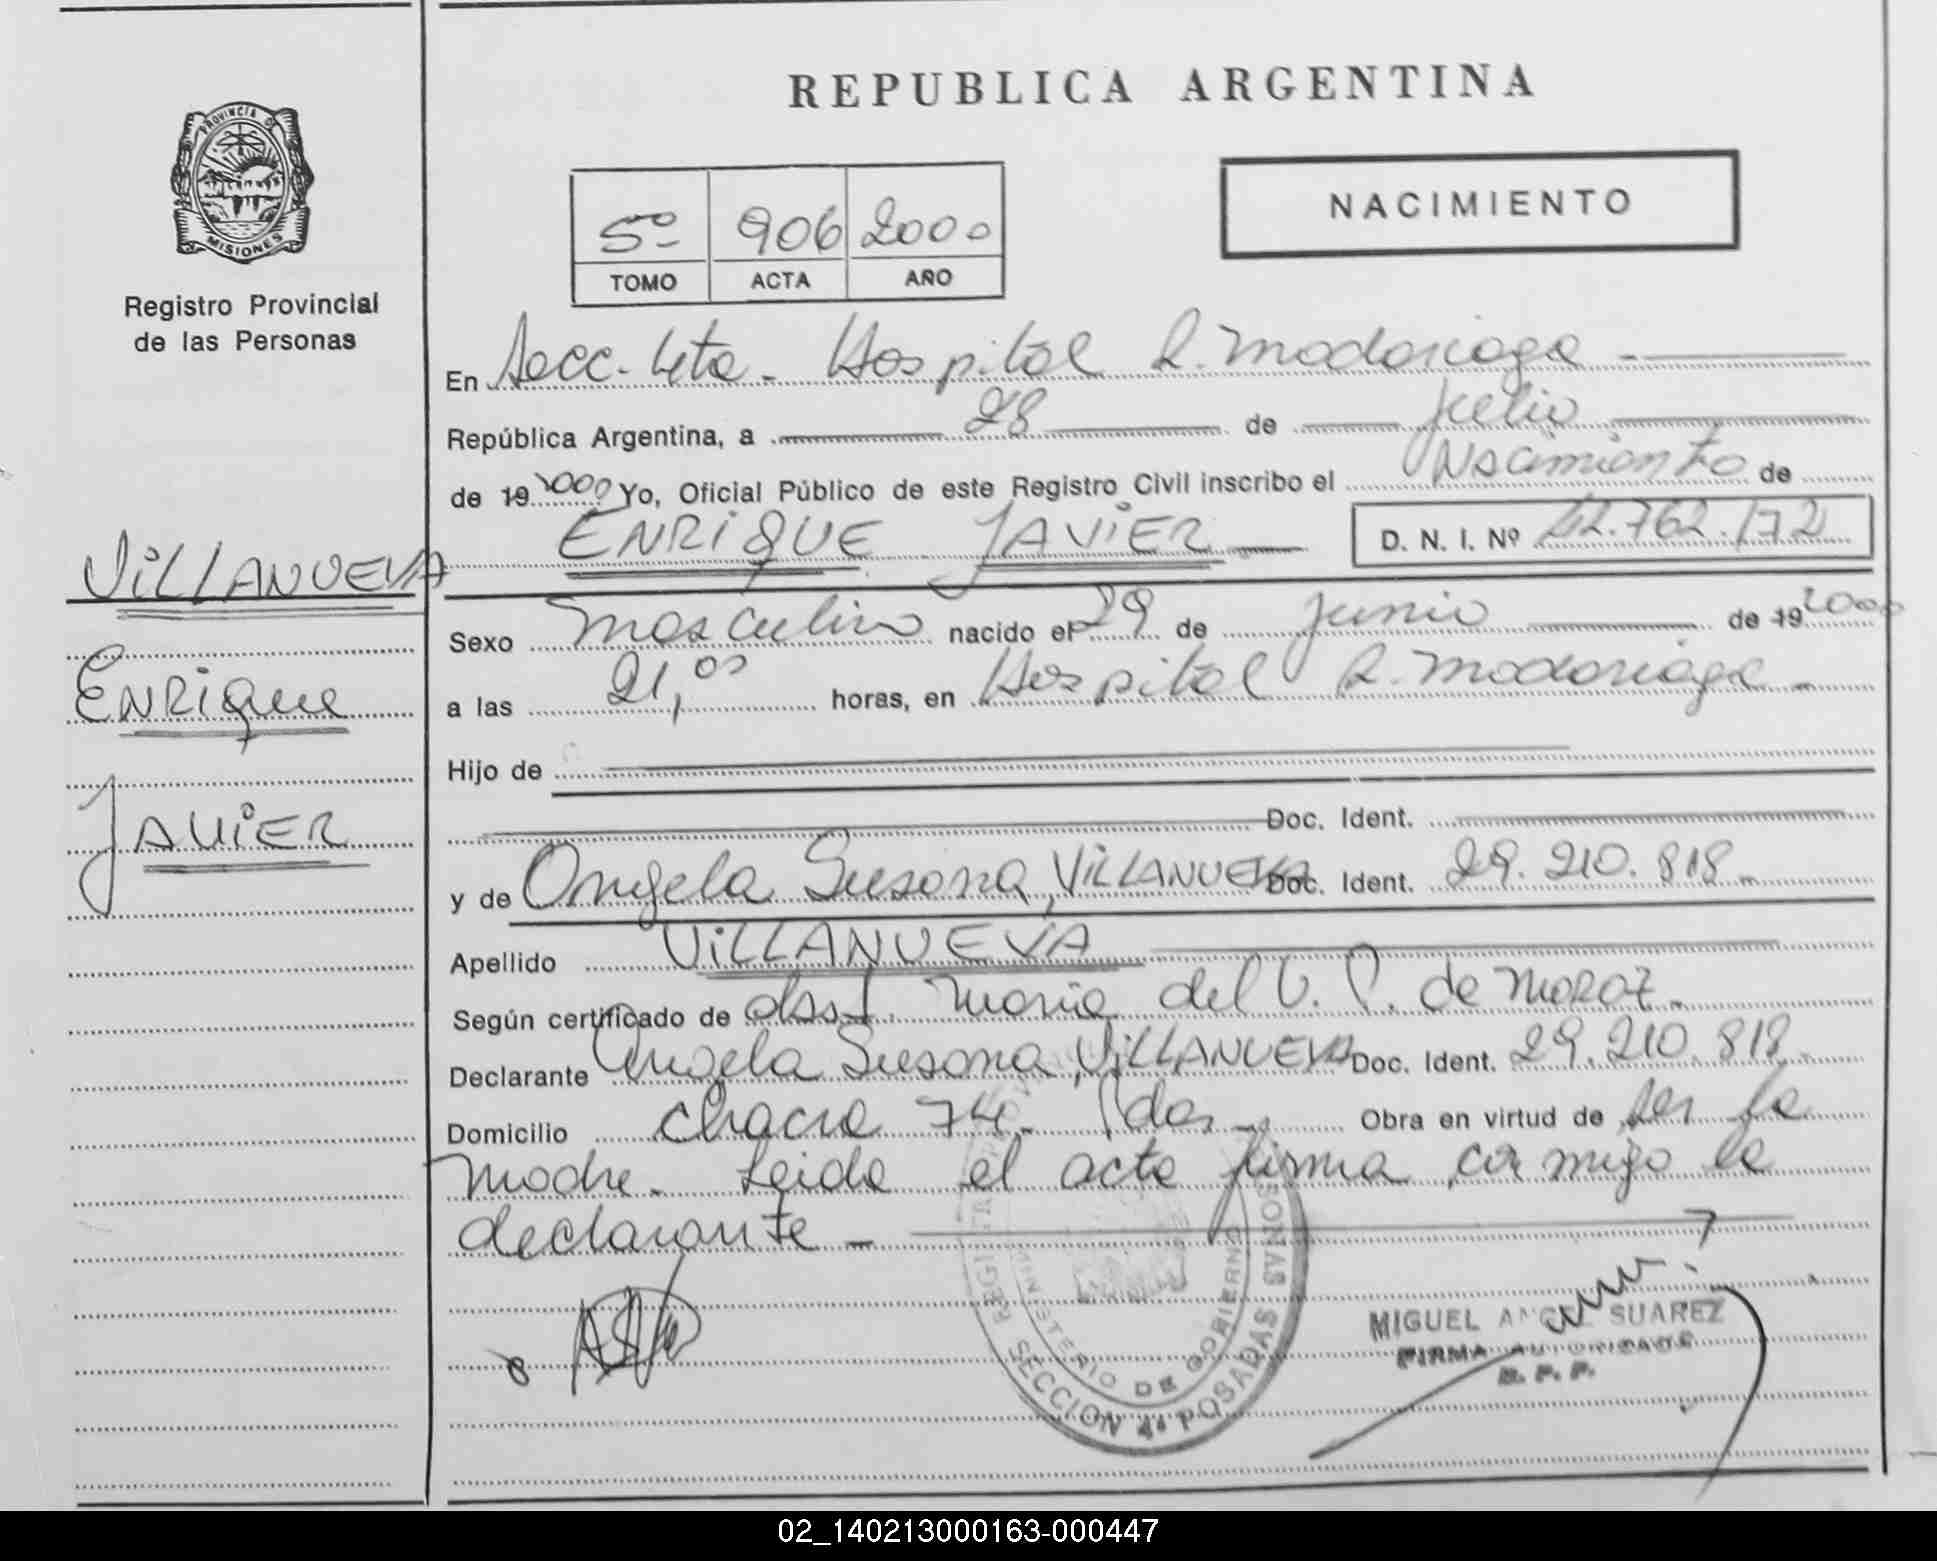 REPUBLICA ARGENTINA
PROVINCIA DE
MISIONES
Registro Provincial
de las Personas
NACIMIENTO
5º 906 2000
TOMO ACTA AÑO
En Secc. 4ta. Hospital R. Madariaga -
República Argentina, a 28 de Julio
de 19 2000 Yo, Oficial Público de este Registro Civil inscribo el Nacimiento de
ENRIQUE JAVIER D. N. I. Nº 42.762.172
VILLANUEVA
Enrique
JAVIER
Sexo masculino nacido el 29 de Junio de 19 2000
a las 21,05 horas, en Hospital R. Madariaga -
Hijo de
Doc. Ident.
y de Angela Susana, VILLANUEVA Doc. Ident. 29.210.818.-
Apellido VILLANUEVA
Según certificado de obst. Maria del V. P. de Moraz.
Declarante Angela Susana, VILLANUEVA Doc. Ident. 29.210.818.
Domicilio chacra 74. Pdas. Obra en virtud de ser la
madre. Leida el acta firma conmigo la
declarante -
MINISTERIO DE GOBIERNO
SECCION 4ª POSADAS
MIGUEL ANGEL SUAREZ
FIRMA AUTORIZADA
R. P. P.
02_140213000163-000447